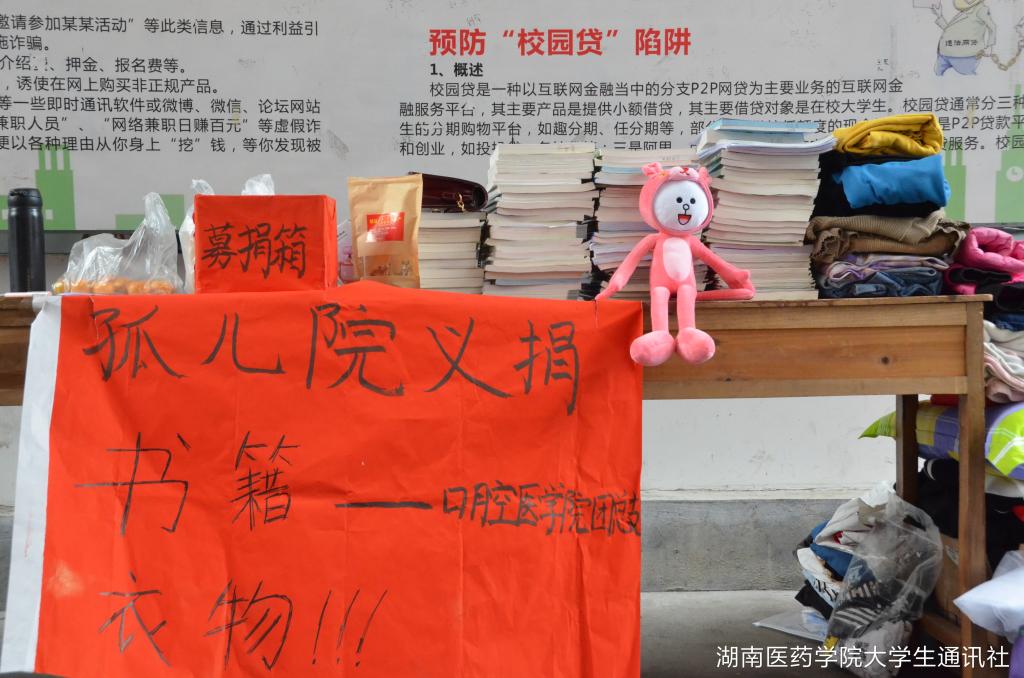 邀请参加某某活动”等此类信息，通过利益引
施诈骗。
押金、报名费等。
，诱使在网上购买非正规产品。
等一些即时通讯软件或微博、微信、论坛网站
兼职人员”、“网络兼职日赚百元”等虚假诈
便以各种理由从你身上“挖”钱，等你发现被
预防“校园贷”陷阱
1、概述
校园贷是一种以互联网金融当中的分支P2P网贷为主要业务的互联网金
融服务平台，其主要产品是提供小额借贷，其主要借贷对象是在校大学生。校园贷通常分三种
生的分期购物平台，如趣分期、任分期等，部
是P2P贷款平
和创业，如投
贷服务。校园
募捐箱
孤儿院义捐
书籍——口腔医学院团总支
衣物!!!
湖南医药学院大学生通讯社